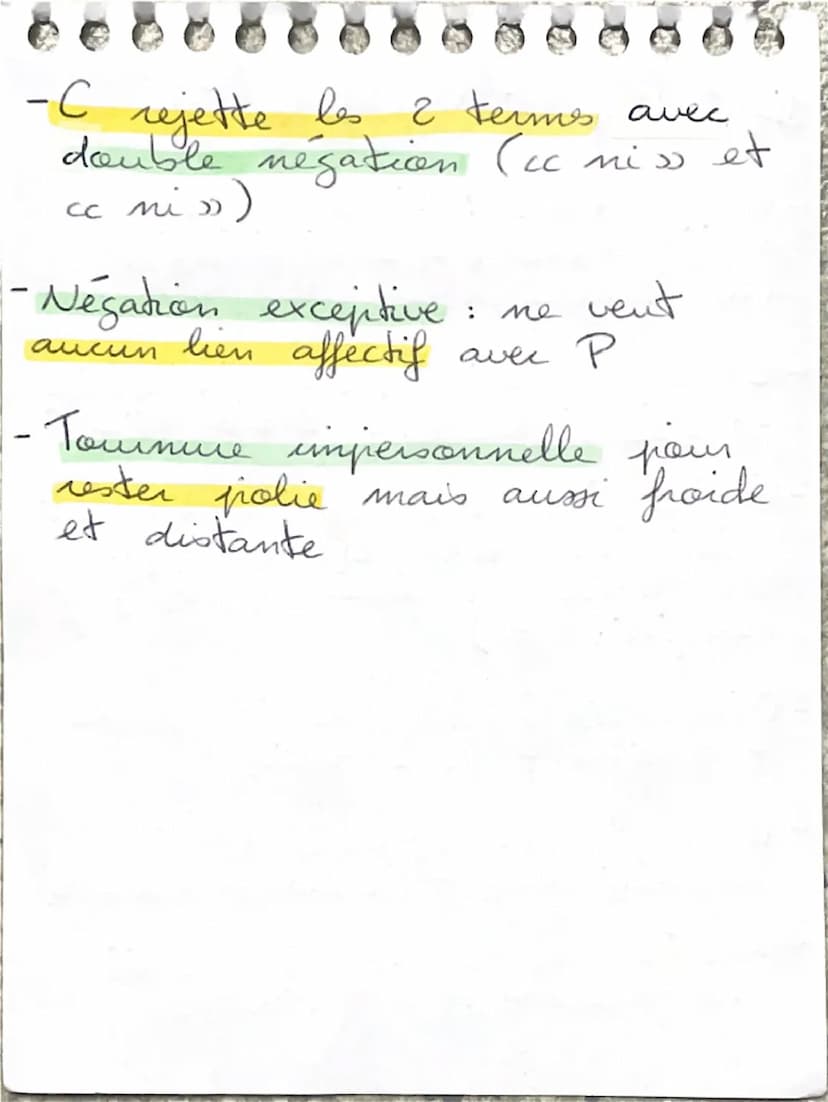 - C rejette les 2 termes avec
double négation (<< ni >> et
<< ni >>)
- Négation exceptive : ne veut
aucun lien affectif avec P
- Tournure impersonnelle pour
rester polie mais aussi froide
et distante